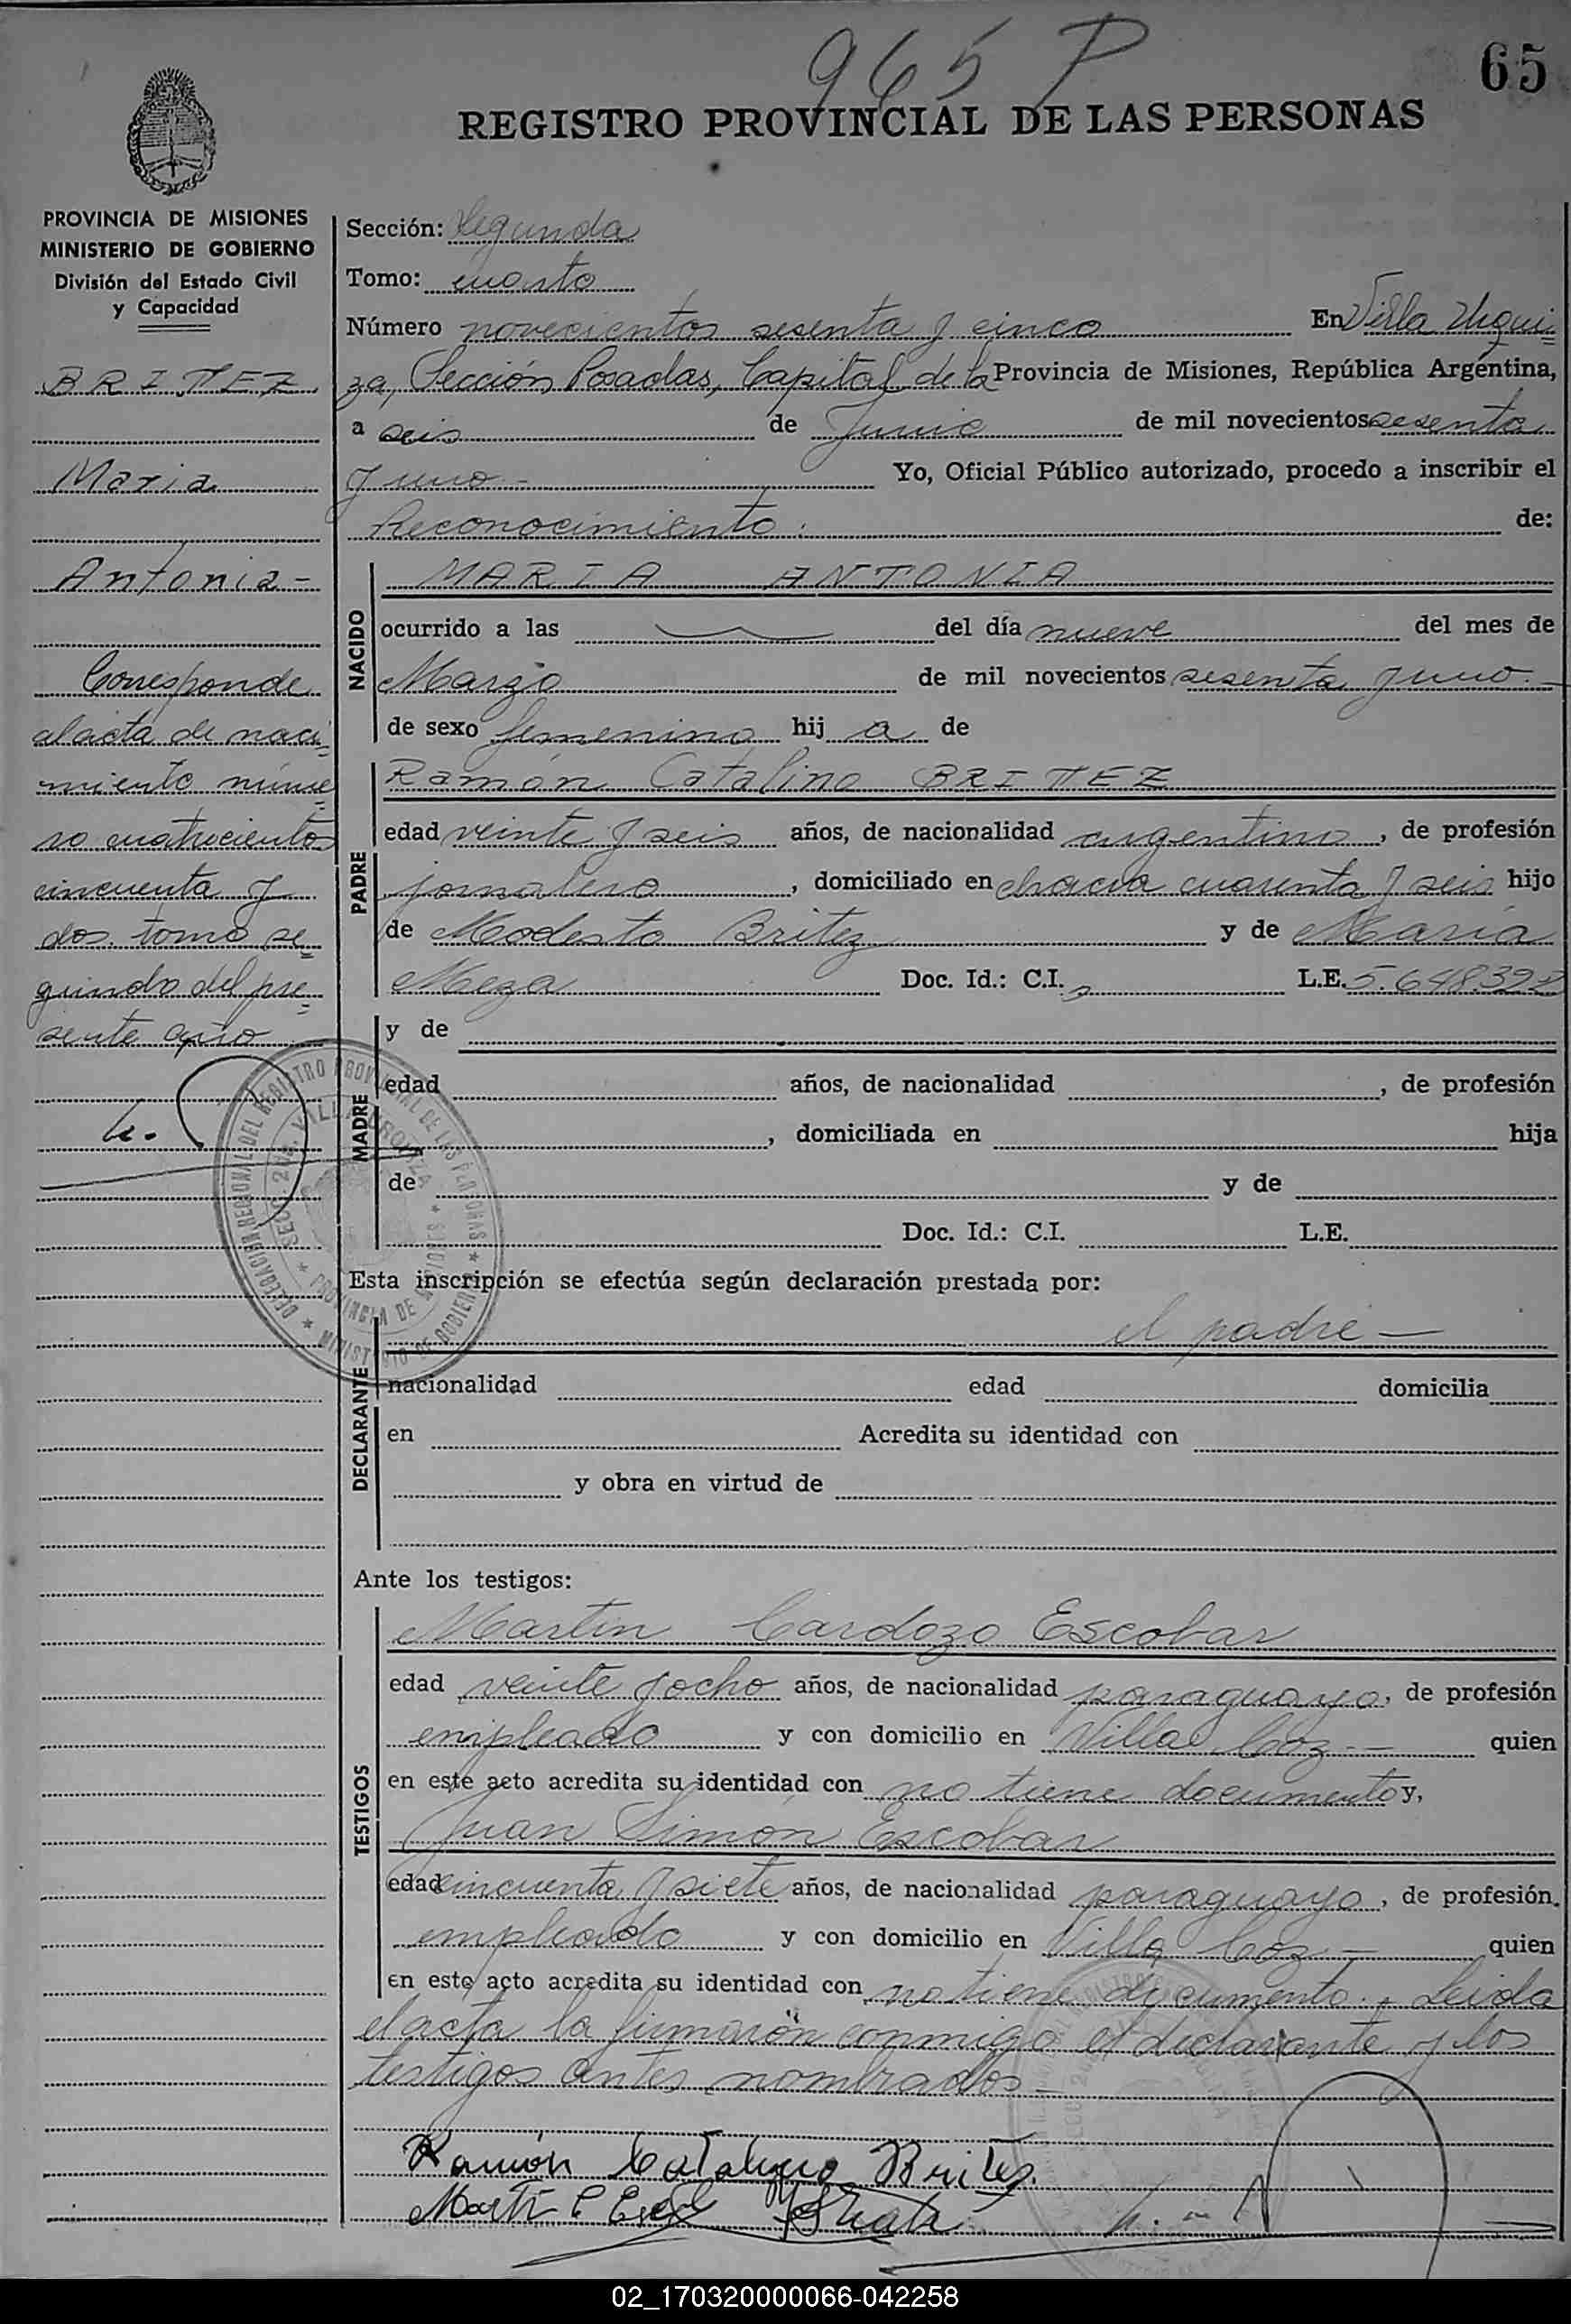 965 P
65
REGISTRO PROVINCIAL DE LAS PERSONAS
PROVINCIA DE MISIONES
MINISTERIO DE GOBIERNO
División del Estado Civil
y Capacidad
BRITEZ
Maria
Antonia-
Corresponde
al acta de naci-
miento núme-
ro cuatrocientos
cincuenta y
dos tomo se-
gundo del pre-
sente año
Sección: Segunda
Tomo: cuarto
Número novecientos sesenta y cinco En Villa Urqui-
za, Sección Posadas, Capital de la Provincia de Misiones, República Argentina,
a seis de Junio de mil novecientos sesenta
y uno- Yo, Oficial Público autorizado, procedo a inscribir el
Reconocimiento. de:
NACIDO
MARIA ANTONIA
ocurrido a las del día nueve del mes de
Marzo de mil novecientos sesenta y uno.-
de sexo femenino hij a de
PADRE
Ramón Catalino BRITEZ
edad veinte y seis años, de nacionalidad argentino, de profesión
jornalero, domiciliado en chacra cuarenta y seis hijo
de Modesto Britez y de Maria
Meza Doc. Id.: C.I. L.E. 5.648.392
MADRE
y de
edad años, de nacionalidad , de profesión
, domiciliada en hija
de y de
Doc. Id.: C.I. L.E.
DELEGACION REGIONAL DEL REGISTRO PROVINCIAL DE LAS PERSONAS * MINISTERIO DE GOBIERNO *
SECC. 2da. VILLA URQUIZA * PROVINCIA DE MISIONES *
Esta inscripción se efectúa según declaración prestada por:
DECLARANTE
el padre —
nacionalidad edad domicilia
en Acredita su identidad con
y obra en virtud de
Ante los testigos:
TESTIGOS
Martin Cardozo Escobar
edad veinte y ocho años, de nacionalidad paraguayo, de profesión
empleado y con domicilio en Villa Coz-- quien
en este acto acredita su identidad con no tiene documento y,
Juan Simón Escobar
edad cincuenta y siete años, de nacionalidad paraguayo, de profesión.
empleado y con domicilio en Villa Coz- quien
en este acto acredita su identidad con no tiene documento. Leida
el acta la firmaron conmigo el declarante y los
testigos antes nombrados-
Ramón Catalino Britez.
02_170320000066-042258